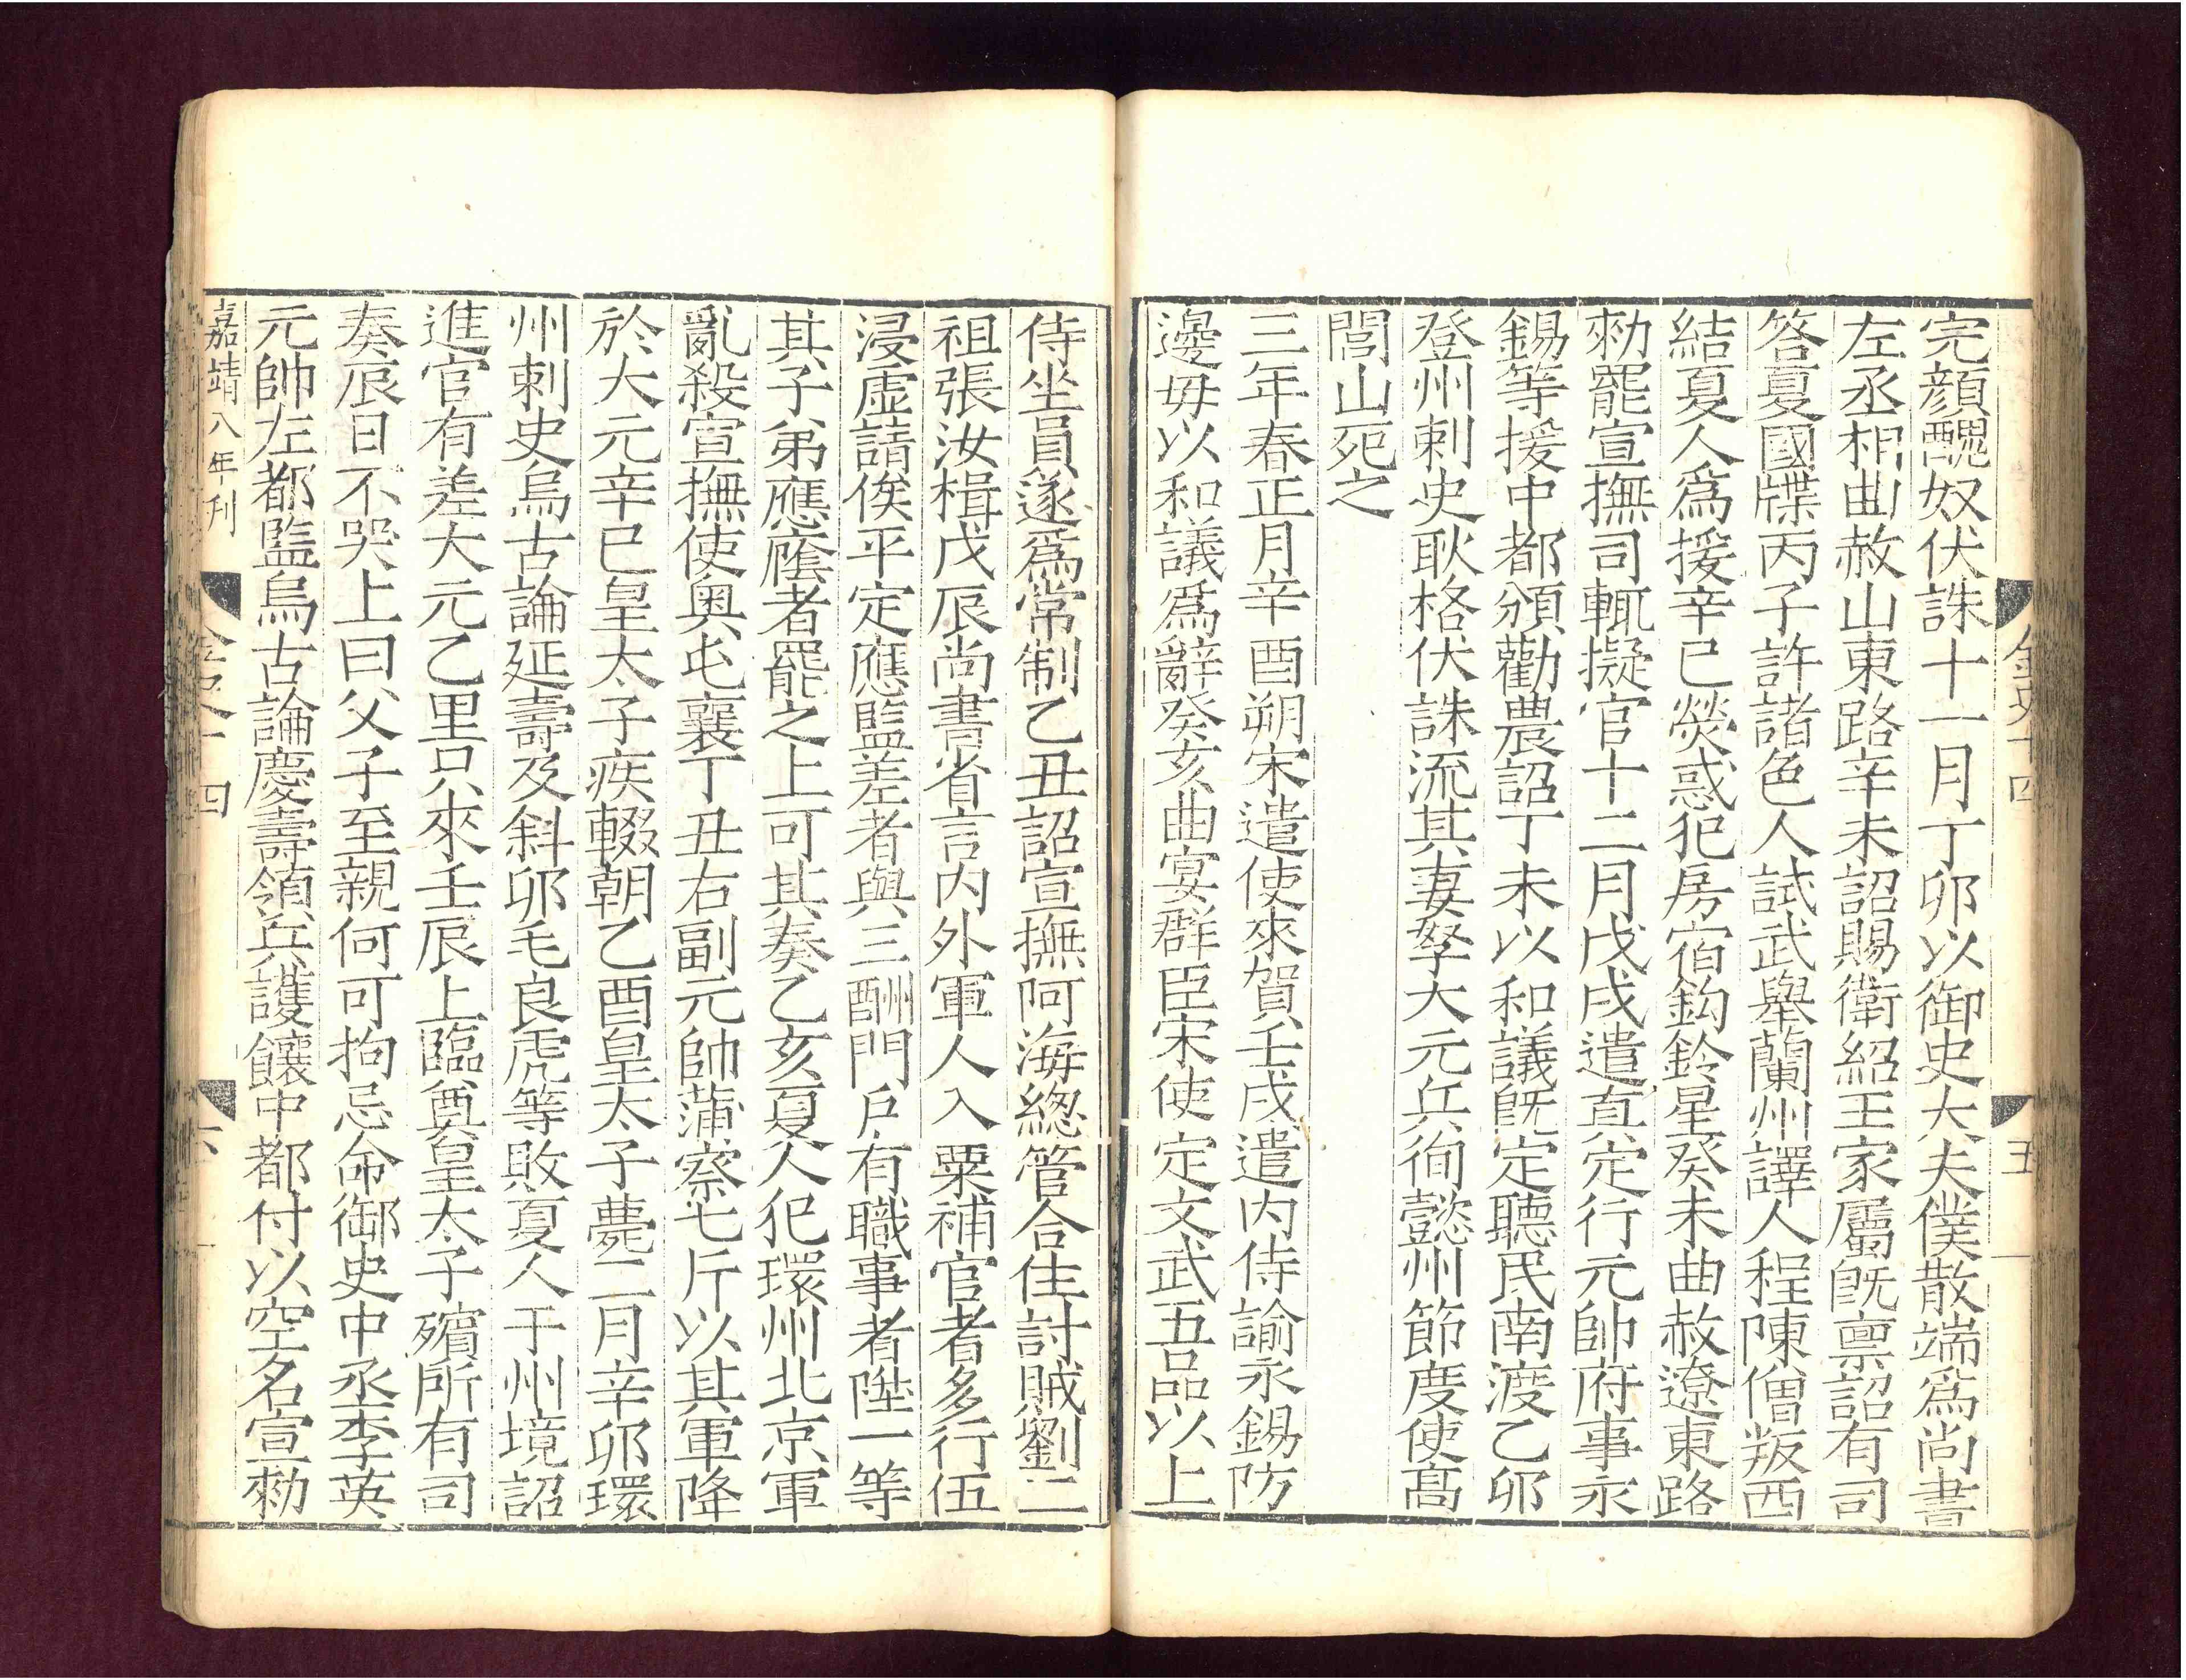 金史十四
五
完顔醜奴伏誅十一月丁卯以御史大夫僕散端爲尚書
左丞相曲赦山東路辛未詔賜衛紹王家屬旣禀詔有司
答夏國牒丙子許諸色人試武舉蘭州譯人程陳僧叛西
結夏人爲援辛巳熒惑犯房宿鈎鈐星癸未曲赦遼東路
勑罷宣撫司輒擬官十二月戊戌遣眞定行元帥府事永
錫等援中都頒勸農詔丁未以和議旣定聽民南渡乙卯
登州刺史耿格伏誅流其妻孥大元兵徇懿州節度使髙
閭山死之
三年春正月辛酉朔宋遣使來賀壬戌遣内侍諭永錫防
邊毋以和議爲辭癸亥曲宴群臣宋使定文武五品以上
侍坐員遂爲常制乙丑詔宣撫阿海緫管合住討賊劉二
祖張汝楫戊辰尚書省言内外軍人入粟補官者多行伍
浸虛請俟平定應監差者與三酬門戸有職事者陞一等
其子弟應廕者罷之上可其奏乙亥夏人犯環州北京軍
亂殺宣撫使奥屯襄丁丑右副元帥蒲察七斤以其軍降
於大元辛巳皇太子疾輟朝乙酉皇太子薨二月辛卯環
州刺史烏古論延壽及斜卯毛良虎等敗夏人于州境詔
進官有差大元乙里只來壬辰上臨奠皇太子殯所有司
奏辰日不哭上曰父子至親何可拘忌命御史中丞李英
元帥左都監烏古論慶壽領兵護饟中都付以空名宣勑
嘉靖八年刊
金史十四
六